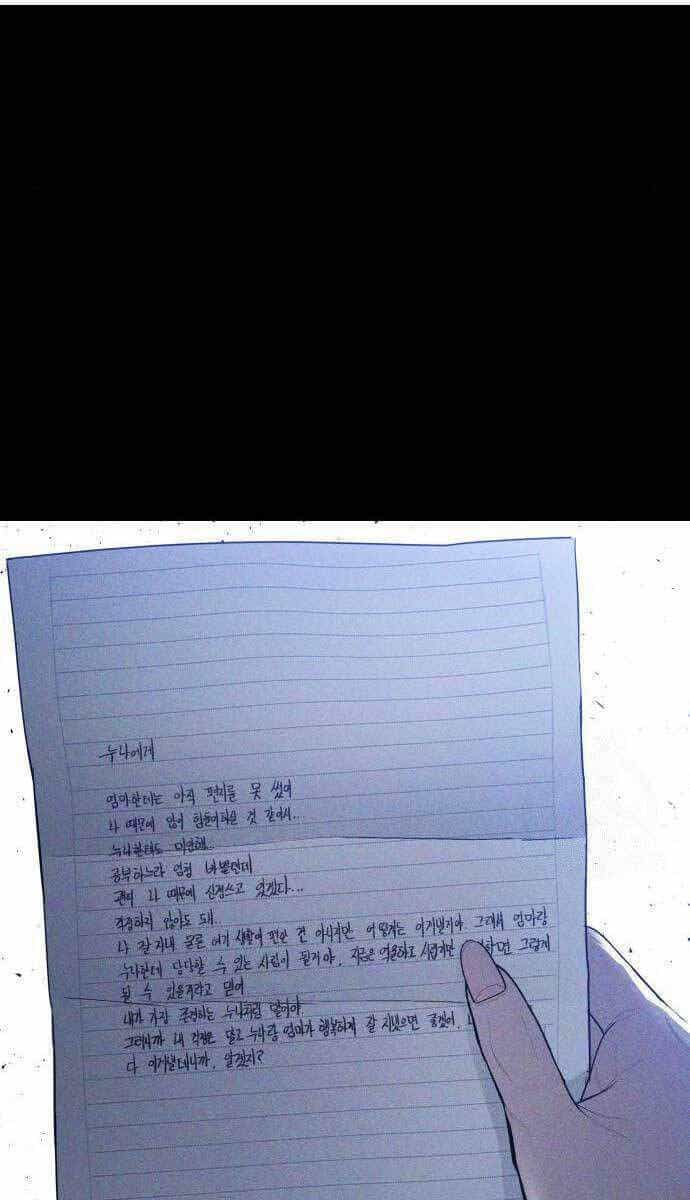 누나에게
엄마한테는 아직 편지를 못 썼어
나 때문에 많이 힘들어하실 것 같아서..
누나한테도 미안해..
공부하느라 엄청 바쁠텐데
괜히 나 때문에 신경쓰고 있겠다...
걱정하지 않아도 돼.
나 잘 지내 물론 여기 생활이 편한 건 아니지만 어떻게든 이겨낼거야 그래서 엄마랑
누나한테 당당할 수 있는 사람이 될거야. 지금은 억울하고 시럽지만 하면 그렇게
될 수 있을거라고 믿어
내가 가장 존경하는 누나처럼 말이야
그러니까 내 걱정은 말고 누나랑 엄마가 행복하게 잘 지냈으면 좋겠어.
다 이겨낼테니까. 알겠지?